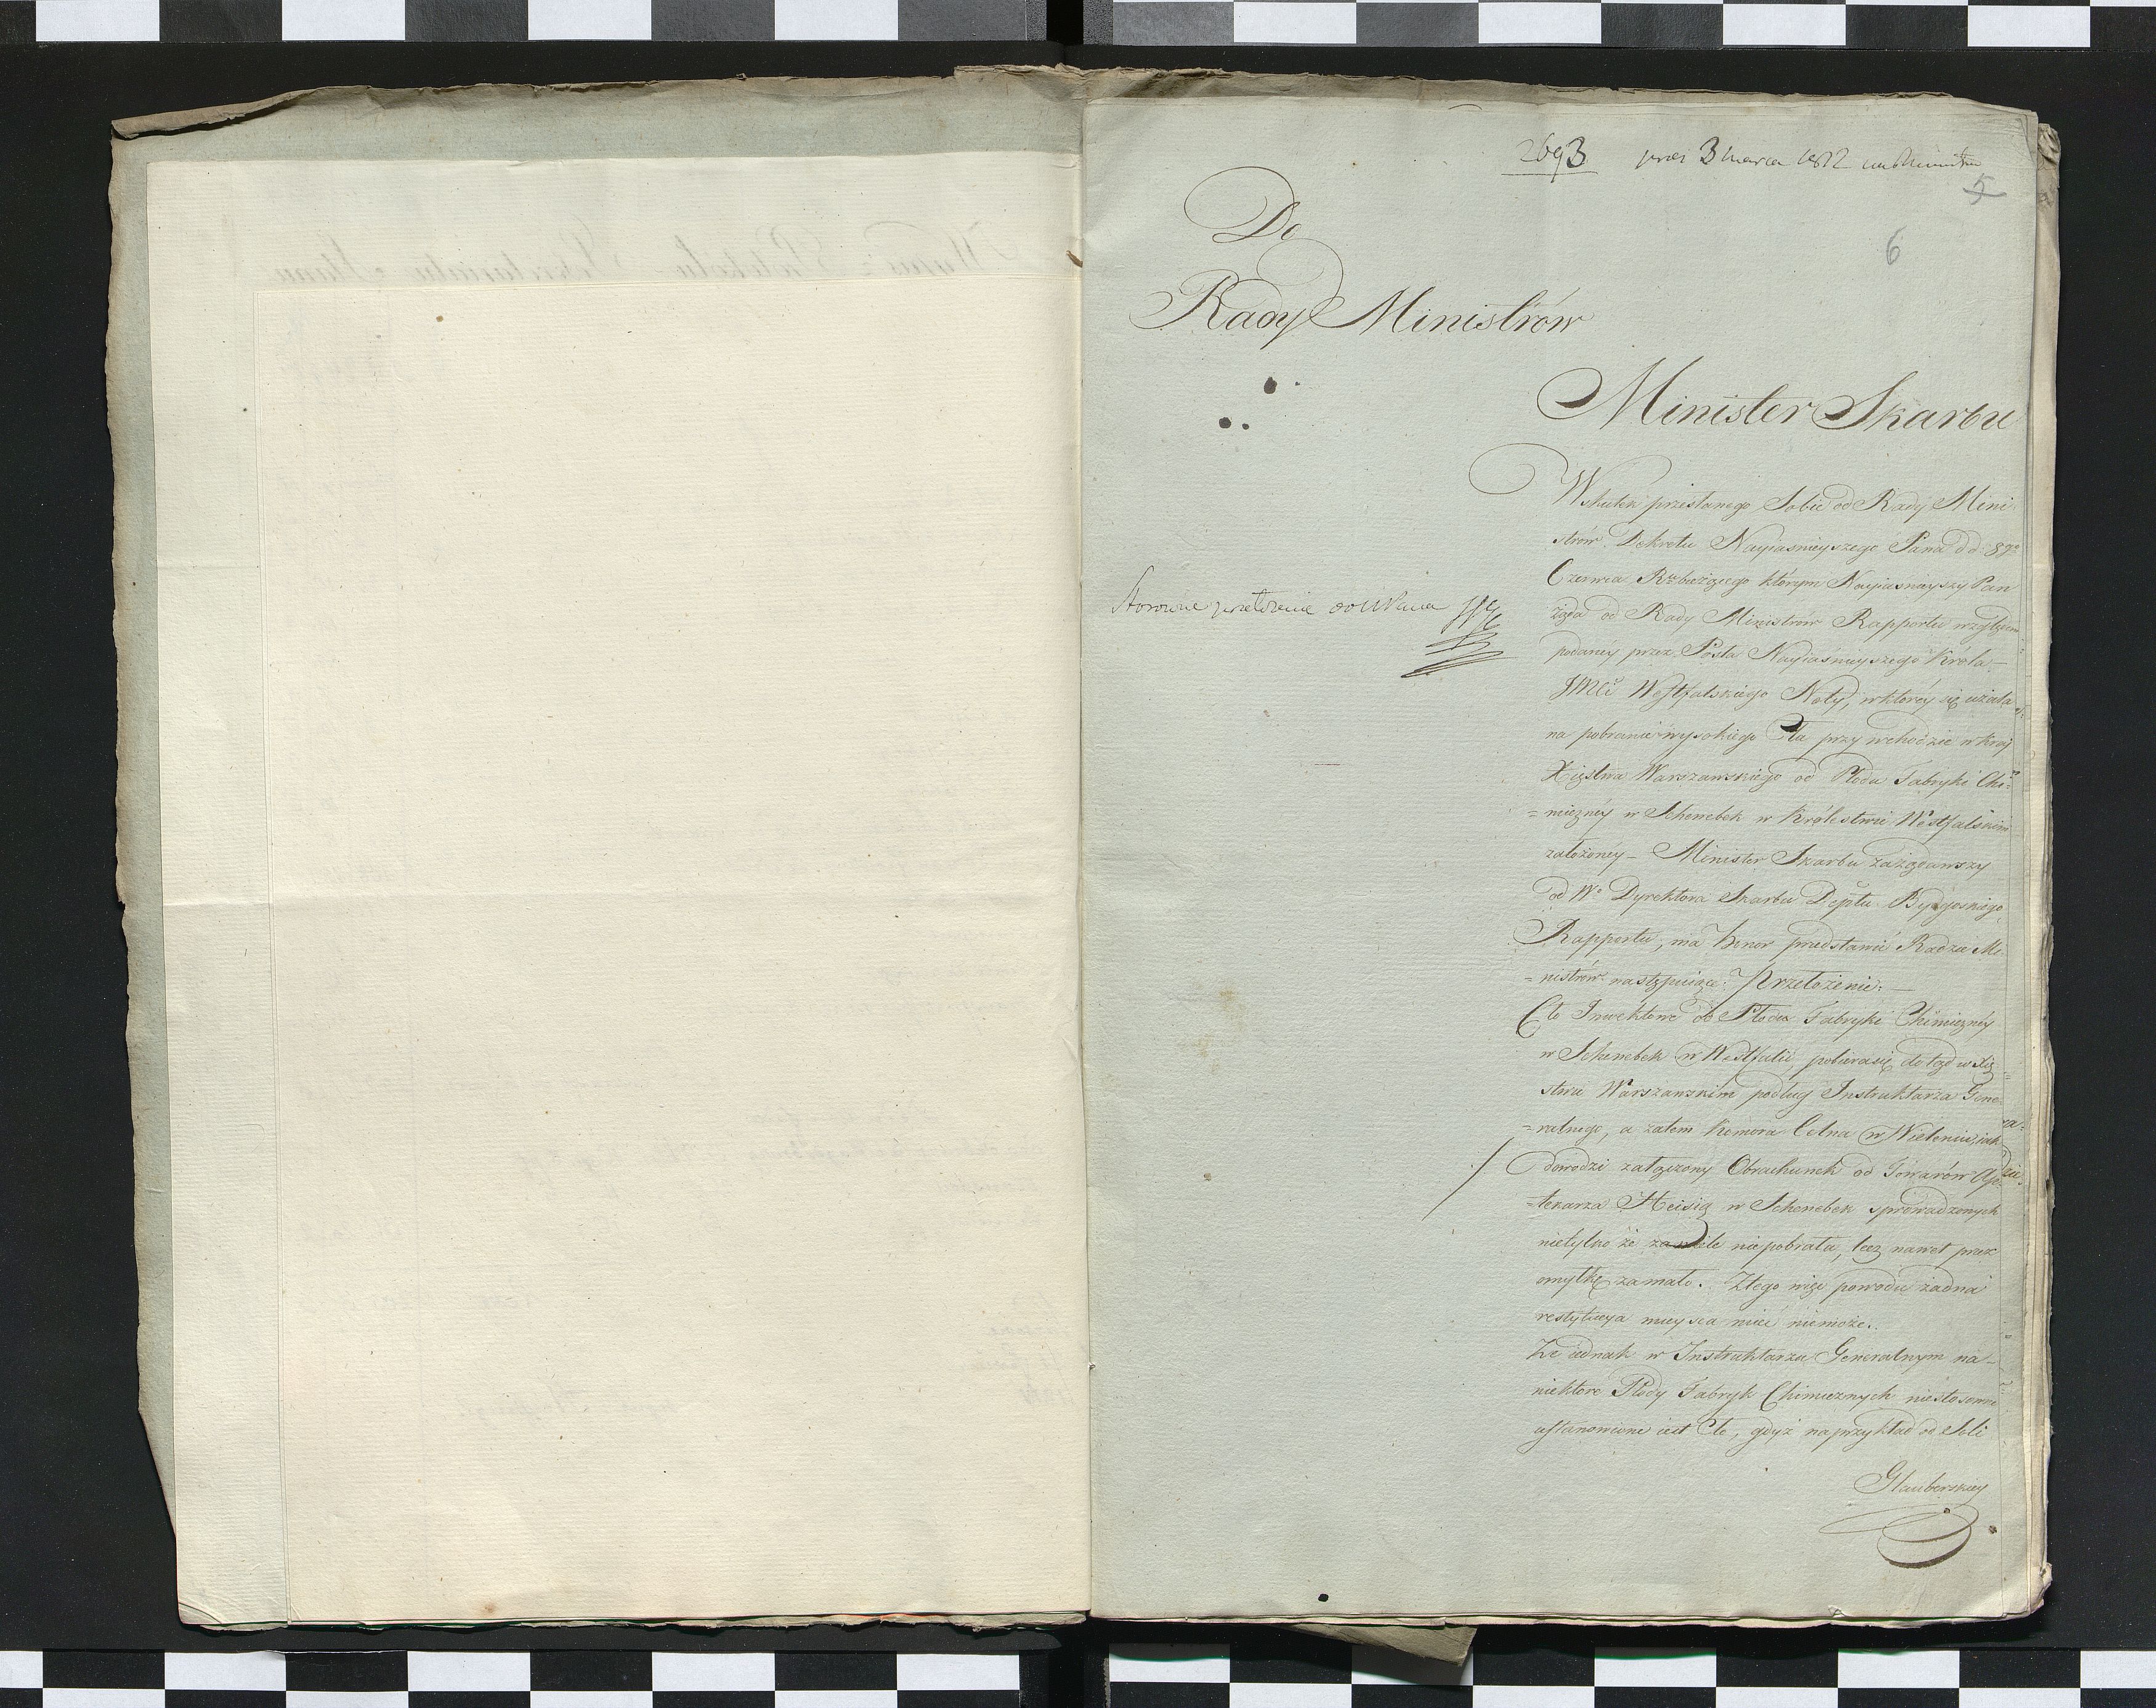 2693 prez 3 marca 1812
5
6
Do
Rady Ministrów
Minister Skarbu
Wskutek przesłanego Sobie od Rady Mini
strów Dekretu Nayiasnieyszego Pana d. d.
Czerwca Rku bieżącego którym Nayiasnayszy Pan
żąda od Rady Ministrów Rapportu względem
podanéy przez Posła Nayiaśnieyszego Króla
JMCi Westfalskiego Noty, w któréy się użala
na pobranie wysokiego Cła przy wchodzie w Kray
Xięstwa Warszawskiego od Płodu Fabryki Chi-
=miczney w Schenebek w Królestwie Westfalskim
założonéy – Minister Skarbu zażądawszy
od Wo Dyrektora Skarbu Deptu Bydgoskiego
Rapportu, ma honor przedstawić Radzie Mi
=nistrów następuiące: Przełożenie. –
Cło Inwektowe od Płodu Fabryki Chimicznéy
w Schenebek w Westfalii, pobiera się dotąd w Xię
stwie Warszawskim podług Instruktarza Gene
=ralnego, a zatem Komora Celna w Wieleniu, iak
dowodzi załączony Obrachunek od Towarów Ap
=tekarza Heisig w Schenebek sprowadzonych
nietylko że zawiele niepobrała, lecz nawet przez
omyłkę zamało. Ztego więc powodu żadna
restytucya mieysca mieć niemoże.
Że iednak w Instruktarzu Generalnym na
niektóre Płody Fabryk Chimicznych niestosowne
ustanowione iest Cło, gdyż naprzykład od Soli
Glauberskiey